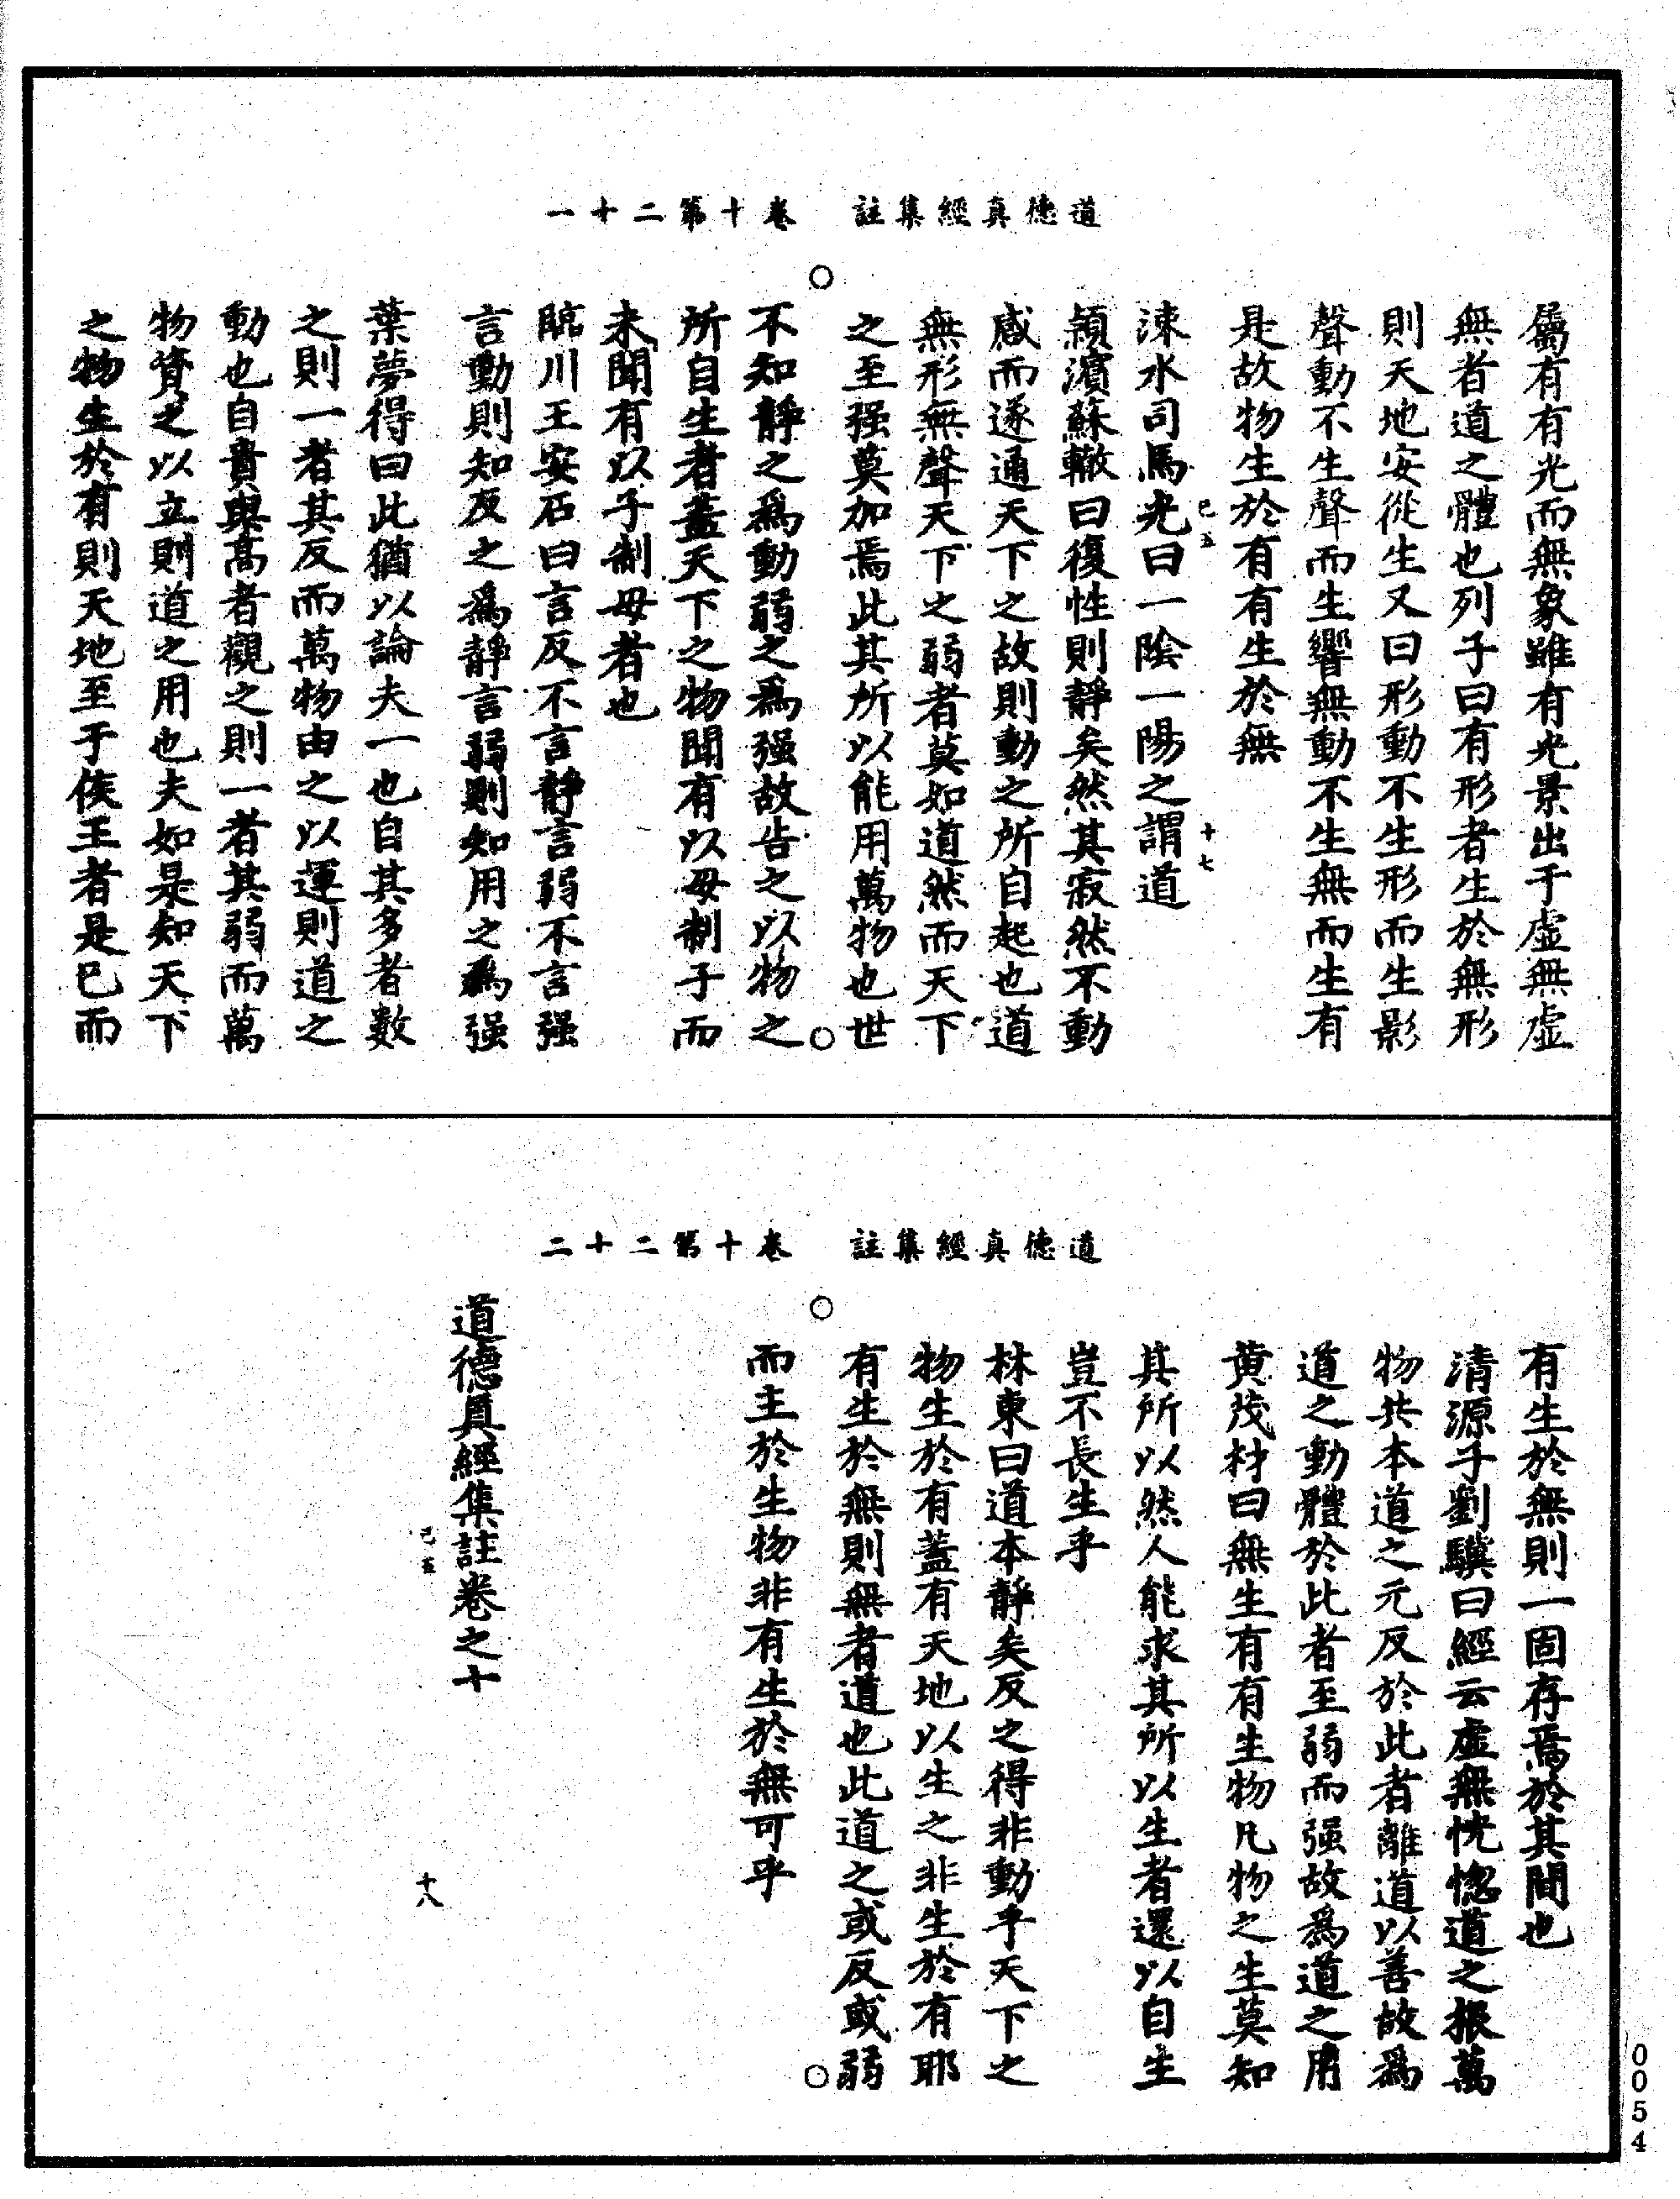 道德真經集註　卷十第二十一
屬有有光而無象雖有光景出于虛無虛
無者道之體也列子曰有形者生於無形
則天地安從生又曰形動不生形而生影
聲動不生聲而生響無動不生無而生有
是故物生於有有生於無
涑水司馬光曰一陰一陽之謂道
己五　十七
潁濱蘇轍曰復性則靜矣然其寂然不動
感而遂通天下之故則動之所自起也道
無形無聲天下之弱者莫如道然而天下
之至强莫加焉此其所以能用萬物也世
不知靜之爲動弱之爲强故告之以物之
所自生者蓋天下之物聞有以母制子而
未聞有以子制母者也
臨川王安石曰言反不言靜言弱不言强
言動則知反之爲靜言弱則知用之爲强
葉夢得曰此猶以論夫一也自其多者數
之則一者其反而萬物由之以運則道之
動也自貴與高者觀之則一者其弱而萬
物資之以立則道之用也夫如是知天下
之物生於有則天地至于侯王者是巳而
道德真經集註　卷十第二十二
有生於無則一固存焉於其間也
清源子劉驥曰經云虛無恍惚道之根萬
物共本道之元反於此者離道以善故爲
道之動體於此者至弱而强故爲道之用
黃茂材曰無生有有生物凡物之生莫知
其所以然人能求其所以生者還以自生
豈不長生乎
林東曰道本靜矣反之得非動乎天下之
物生於有蓋有天地以生之非生於有耶
有生於無則無者道也此道之或反或弱
而主於生物非有生於無可乎
道德真經集註卷之十
己五　十八
0054